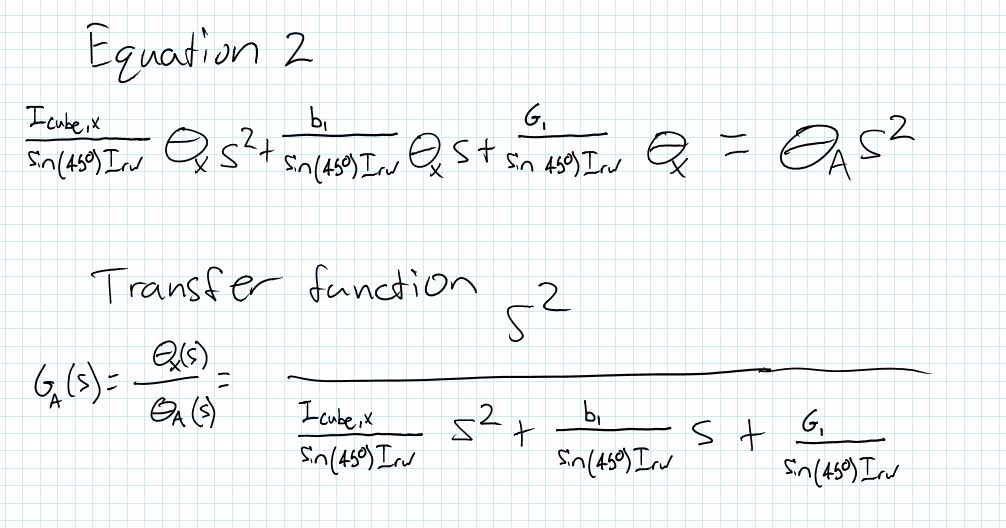 Equation 2
I_cube,x / sin(45°) I_rw Θ_x s² + b₁ / sin(45°) I_rw Θ_x s + G₁ / sin 45°) I_rw Θ_x = Θ_A s²
Transfer function
G_A(s) = Θ_x(s) / Θ_A(s) = s² / I_cube,x / sin(45°) I_rw s² + b₁ / sin(45°) I_rw s + G₁ / sin(45°) I_rw